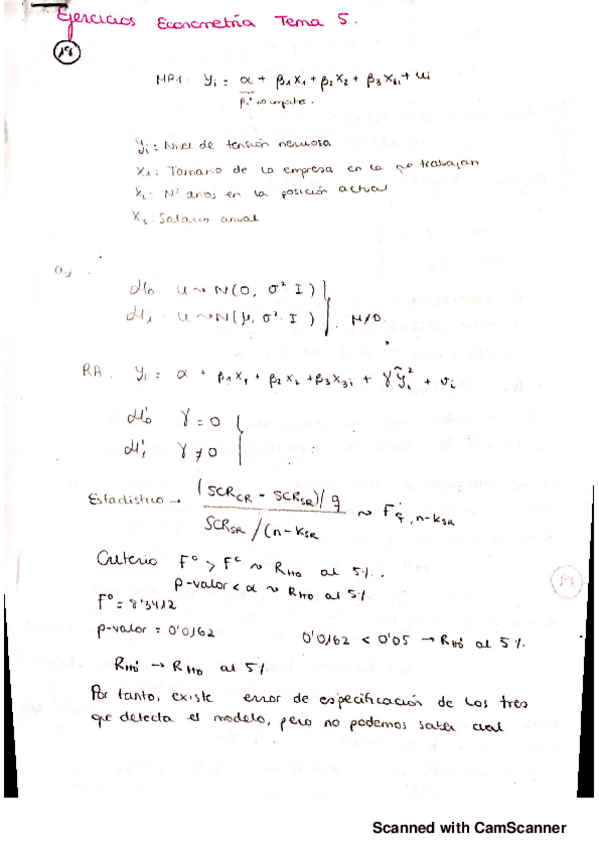 Ejercicios Econometría Tema 5.
18
MP1: yi = α + β1X1 + β2X2 + β3X3i + ui
y: Nivel de tensión nerviosa
X1: Tamario de la empresa en la que trabajan
X2: Nº anos en la posición actual
X3: Salario anual
a)
H0 u ~ N(0, σ² I)
H1: u ~ N(μ, σ² I) μ≠0.
RA: yi = α + β1X1 + β2X2 + β3X3i + γŷi² + vi
H0' γ = 0
H1' γ ≠ 0
Estadístico → (SCR_CR - SCR_SR)/q
SCR_SR/(n-K_SR ~ F q, n-K_SR
Criterio F⁰ > Fᶜ ~ RH0 al 5%.
p-valor < α ~ RH0 al 5%
F⁰ = 8'3412
p-valor = 0'0162 0'0162 < 0'05 → RH0' al 5%.
RH0' → RH0 al 5%.
Por tanto, existe error de especificación de los tres
que detecta el modelo, pero no podemos saber cual
Scanned with CamScanner